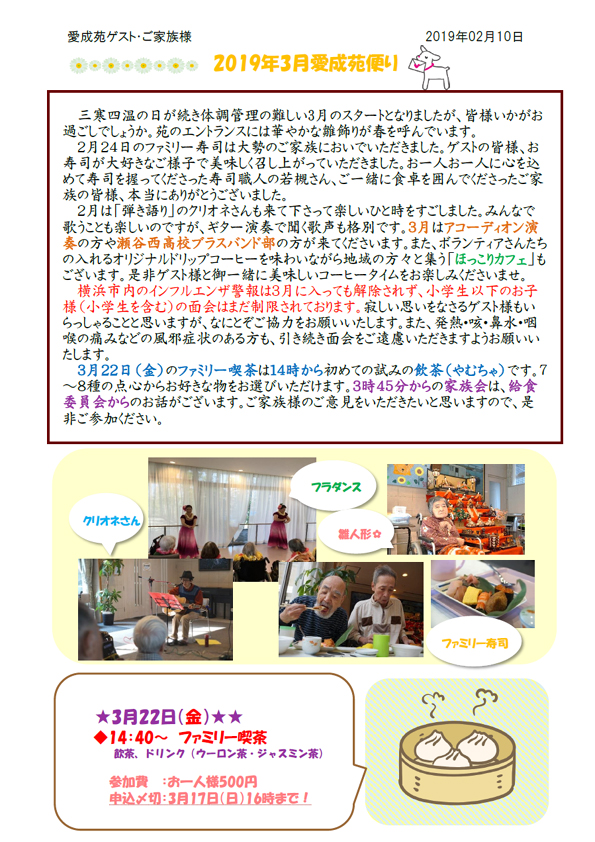 愛成苑ゲスト・ご家族様
2019年02月10日
2019年3月愛成苑便り
三寒四温の日が続き体調管理の難しい3月のスタートとなりましたが、皆様いかがお
過ごしでしょうか。苑のエントランスには華やかな雛飾りが春を呼んでいます。
2月24日のファミリー寿司は大勢のご家族においでいただきました。ゲストの皆様、お
寿司が大好きなご様子で美味しく召し上がっていただきました。お一人お一人に心を込
めて寿司を握ってくださった寿司職人の若槻さん、ご一緒に食卓を囲んでくださったご家
族の皆様、本当にありがとうございました。
2月は「弾き語り」のクリオネさんも来て下さって楽しいひと時をすごしました。みんなで
歌うことも楽しいのですが、ギター演奏で聞く歌声も格別です。3月はアコーディオン演
奏の方や瀬谷西高校ブラスバンド部の方が来てくださいます。また、ボランティアさんたち
の入れるオリジナルドリップコーヒーを味わいながら地域の方々と集う「ほっこりカフェ」も
ございます。是非ゲスト様と御一緒に美味しいコーヒータイムをお楽しみくださいませ。
横浜市内のインフルエンザ警報は3月に入っても解除されず、小学生以下のお子
様（小学生を含む）の面会はまだ制限されております。寂しい思いをなさるゲスト様もい
らっしゃることと思いますが、なにとぞご協力をお願いいたします。また、発熱・咳・鼻水・咽
喉の痛みなどの風邪症状のある方も、引き続き面会をご遠慮いただきますようお願いい
たします。
3月22日（金）のファミリー喫茶は14時から初めての試みの飲茶（やむちゃ）です。7
～8種の点心からお好きな物をお選びいただけます。3時45分からの家族会は、給食
委員会からのお話がございます。ご家族様のご意見をいただきたいと思いますので、是
非ご参加ください。
フラダンス
クリオネさん
雛人形✿
ファミリー寿司
★3月22日（金）★★
◆14:40～ ファミリー喫茶
飲茶、ドリンク（ウーロン茶・ジャスミン茶）
参加費 ：お一人様500円
申込〆切：3月17日（日）16時まで！